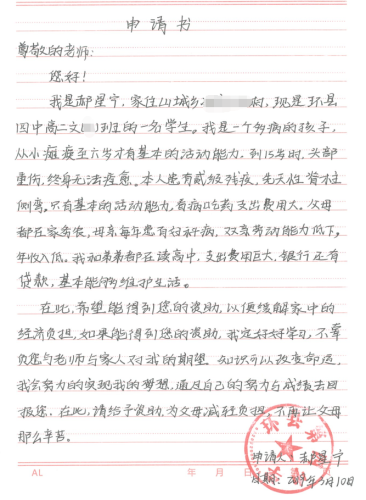 申请书
尊敬的老师:
您好!
我是郝星宁,家住山城乡 村,现是环县
四中高二文 班的一名学生。我是一个多病的孩子,
从小瘫痪至六岁才有基本的活动能力,到15岁时,头部
重伤,终身无法痊愈。本人患有贰级残疾,先天性脊柱
侧弯。只有基本的活动能力,看病吃药支出费用大。父母
都在家务农,母亲每年患有妇科病,双亲劳动能力低下。
年收入低。我和弟弟都在读高中,支出费用巨大,银行还有
贷款,基本能够维护生活。
在此,希望能得到您的资助,以便缓解家中的
经济负担,如果能得到您的资助,我定好好学习,不辜
负您与老师与家人对我的期望。知识可以改变命运,
我会努力的实现我的梦想,通过自己的努力与成绩去回
报您。在此,请给予资助,为父母减轻负担,不再让父母
那么辛苦。
申请人:郝星宁
日期: 年5月10日
AL 年 月 日 第 页
环县